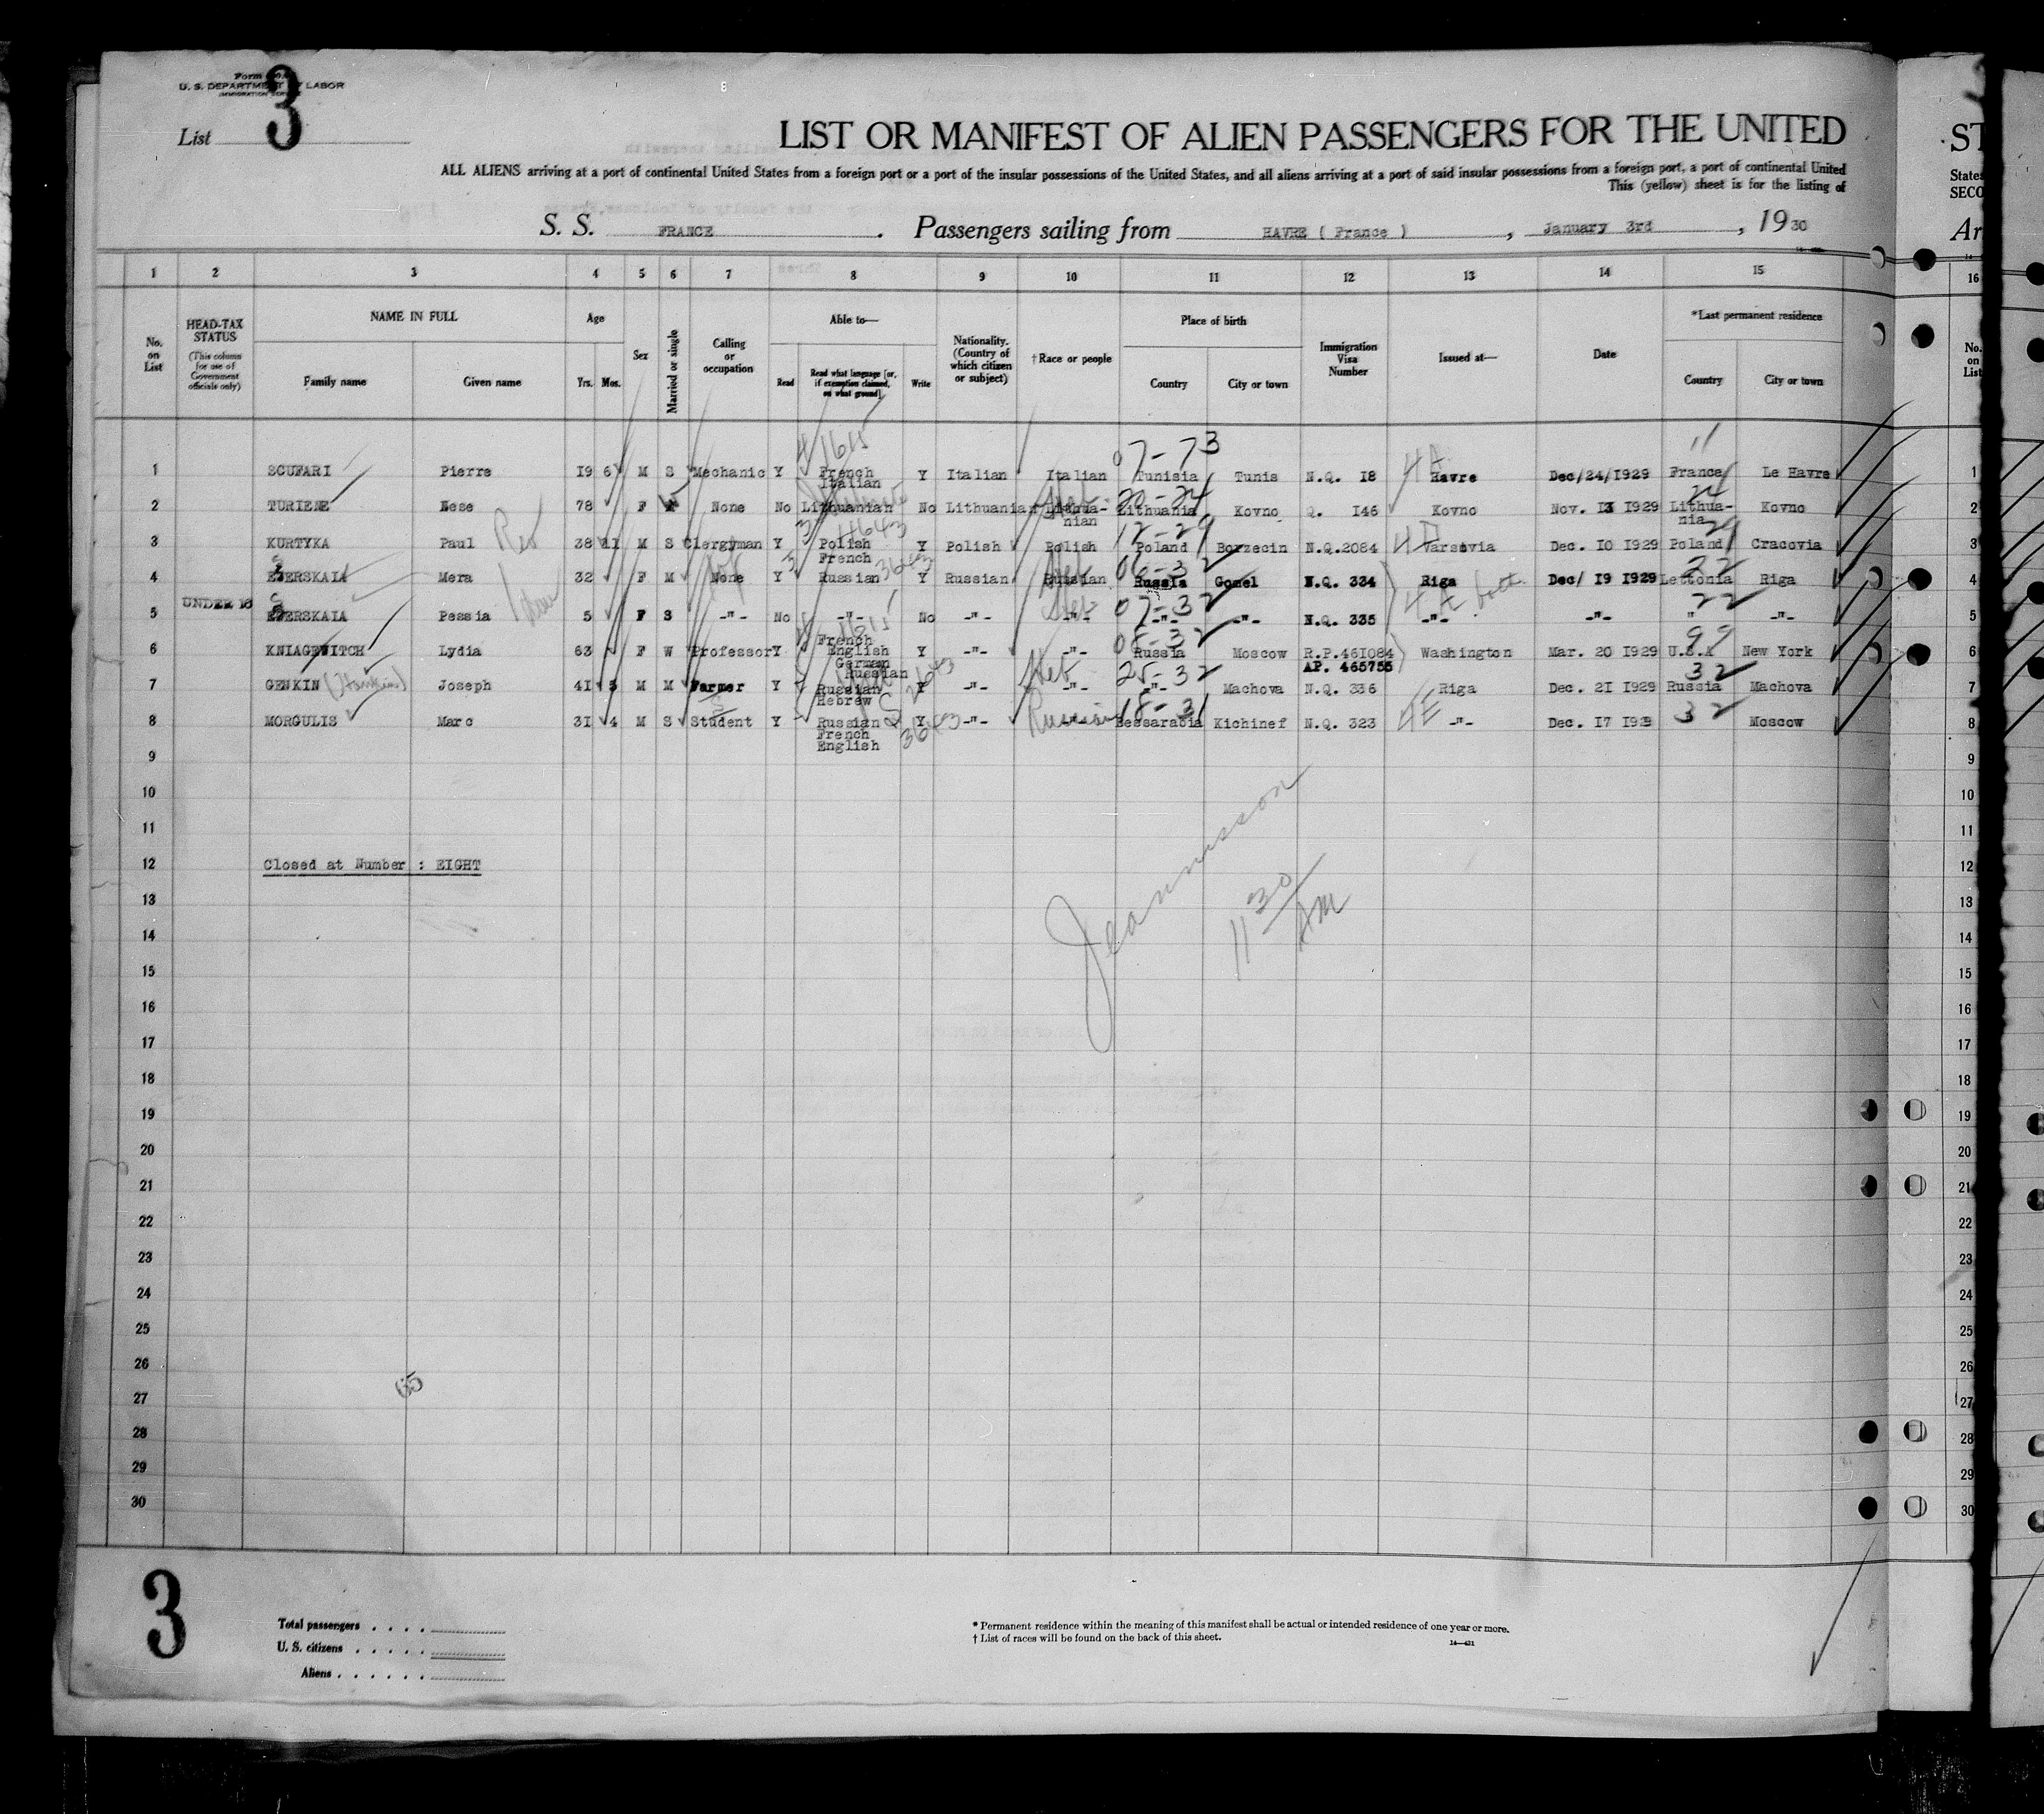 Form
U. S. DEPARTMENT OF LABOR
IMMIGRATION SERVICE
3
List
LIST OR MANIFEST OF ALIEN PASSENGERS FOR THE UNITED
ST
ALL ALIENS arriving at a port of continental United States from a foreign port or a port of the insular possessions of the United States, and all aliens arriving at a port of said insular possessions from a foreign port, a port of continental United
States
This (yellow) sheet is for the listing of
SECO
S. S. FRANCE . Passengers sailing from HAVRE ( France ) , January 3rd , 1930
Ar
1 2 3 4 5 6 7 8 9 10 11 12 13 14 15 16
No. on List
HEAD-TAX STATUS
(This column for use of Government officials only)
NAME IN FULL
Family name Given name
Age
Yrs. Mos.
Sex
Married or single
Calling or occupation
Able to—
Read
Read what language [or, if exemption claimed, on what ground]
Write
Nationality. (Country of which citizen or subject)
†Race or people
Place of birth
Country City or town
Immigration Visa Number
Issued at—
Date
*Last permanent residence
Country City or town
No. on List
07-73 11
1 SCUFARI Pierre 19 6 M S Mechanic Y French Italian Y Italian Italian Tunisia Tunis N.Q. 18 Havre Dec/24/1929 France Le Havre 1
20-24 24
2 TURIENE Nese 78 F None No Lithuanian No Lithuanian Lithua-nian Lithuania Kovno Q. 146 Kovno Nov. 13 1929 Lithua-nia Kovno 2
12-29 29
3 KURTYKA Paul 38 11 M S Clergyman Y Polish French Y Polish Polish Poland Borzecin N.Q.2084 Varsovia Dec. 10 1929 Poland Cracovia 3
06-32 22
4 EJERSKAIA Mera 32 F M None Y Russian Y Russian Russian Russia Gomel N.Q. 334 Riga Dec/ 19 1929 Lettonia Riga 4
UNDER 16 07-32 22
5 EJERSKAIA Pessia 5 F S -"- No -"- No -"- -"- -"- -"- N.Q. 335 -"- -"- " -"- 5
06-32 99
6 KNIAGEWITCH Lydia 63 F W Professor Y French English German Russian Y -"- -"- Russia Moscow R.P.461084 AP. 465755 Washington Mar. 20 1929 U.S.A New York 6
Heb 25-32 32
7 GENKIN (Henkin) Joseph 41 5 M M Farmer Y Russian Hebrew Y -"- -"- -"- Machova N.Q. 336 Riga Dec. 21 1929 Russia Machova 7
Russian 18-31 32
8 MORGULIS Marc 31 4 M S Student Y Russian French English Y -"- -"- Bessarabia Kichinef N.Q. 323 -"- Dec. 17 1929 Moscow 8
9 9
10 10
11 11
12 Closed at Number : EIGHT 12
13 13
14 14
15 15
16 16
17 17
18 18
19 19
20 20
21 21
22 22
23 23
24 24
25 25
26 26
27 27
28 28
29 29
30 30
11 30 AM
65
3
Total passengers . . . .
U. S. citizens . . . . .
Aliens . . . . . .
* Permanent residence within the meaning of this manifest shall be actual or intended residence of one year or more.
† List of races will be found on the back of this sheet.
14—431